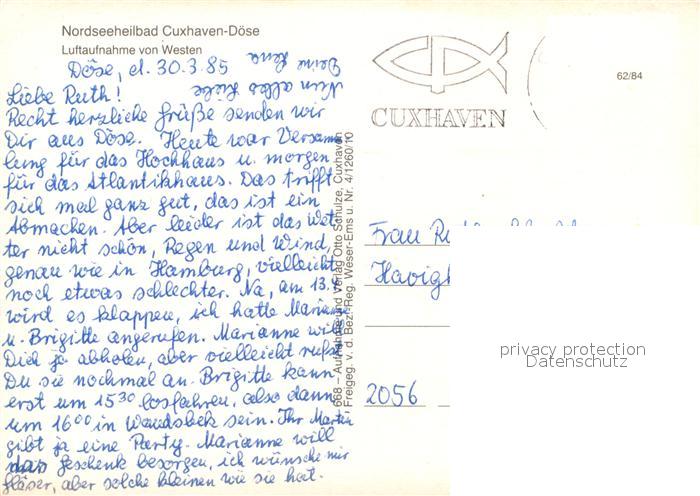 Nordseeheilbad Cuxhaven-Döse
Luftaufnahme von Westen
Döse, d. 30.3.85
Liebe Ruth!
Recht herzliche Grüße senden wir
Dir aus Döse. Heute war Versamm
lung für das Hochhaus u. morgen
für das Atlantikhaus. Das trifft
sich mal ganz gut, das ist ein
Abmachen. Aber leider ist das Wet-
ter nicht schön, Regen und Wind,
genau wie in Hamburg, vielleicht
noch etwas schlechter. Na, am 13.4.
wird es klappen, ich hatte Marianne
u. Brigitte angerufen. Marianne will
Dich ja abholen, aber vielleicht rufst
Du sie nochmal an. Brigitte kann
erst um 15 30 losfahren, also dann
um 16 00 in Wandsbek sein. Ihr Martin
gibt ja eine Party. Marianne will
das Geschenk besorgen, ich wünsche mir
Gläser, aber solche kleinen wie sie hat.
Nun alles Liebe
Deine Lena
668 – Aufnahme und Verlag Otto Schulze, Cuxhaven
Freigeg. v. d. Bez.-Reg. Weser-Ems u. Nr. 4/1260/10
CUXHAVEN
62/84
Frau
2056
privacy protection
Datenschutz